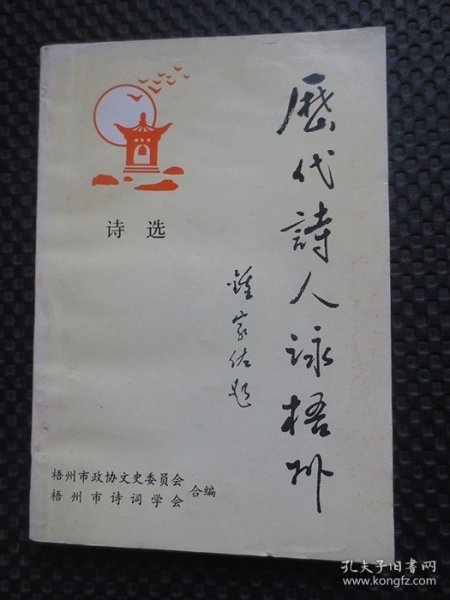 歷代詩人詠梧州
鍾家佐題
诗选
梧州市政协文史委员会
梧州市诗词学会
合编
孔夫子旧书网
www.kongfz.com